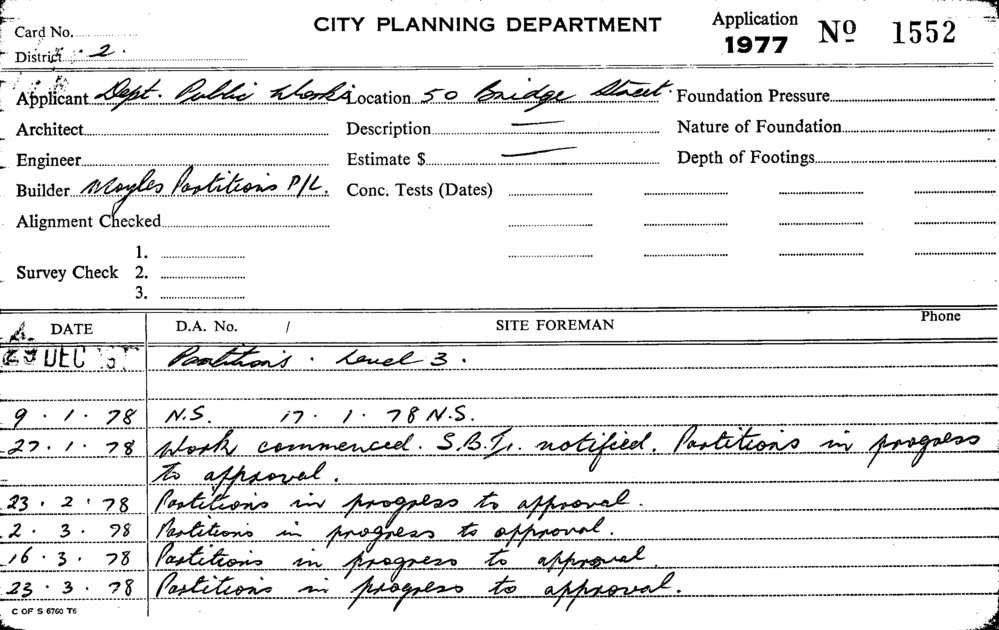 Card No.
CITY PLANNING DEPARTMENT
Application 1977 Nº 1552
District 2.
Applicant Dept. Public Works Location 50 Bridge Street. Foundation Pressure
Architect Description — Nature of Foundation
Engineer Estimate $ — Depth of Footings
Builder Moyles Partitions P/L. Conc. Tests (Dates)
Alignment Checked
1.
Survey Check 2.
3.
DATE D.A. No. / SITE FOREMAN Phone
DEC Partitions. Level 3.
9. 1. 78 N.S. 17. 1. 78 N.S.
27. 1. 78 Work commenced. notified. Partitions in progress
to approval.
23. 2. 78 Partitions in progress to approval.
2. 3. 78 Partitions in progress to approval.
16. 3. 78 Partitions in progress to approval.
23. 3. 78 Partitions in progress to approval.
C OF S 6760 T6